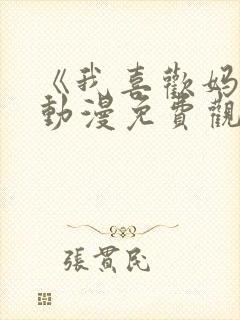 《我喜歡妈
動漫免費觀
張貫民